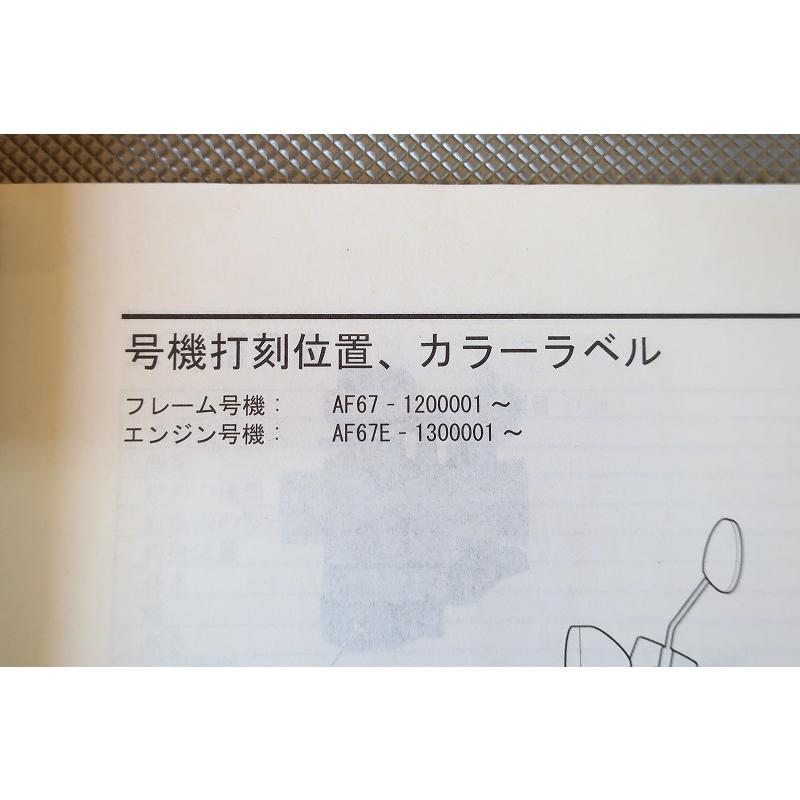 号機打刻位置、カラーラベル
フレーム号機： AF67 - 1200001 ～
エンジン号機： AF67E - 1300001 ～